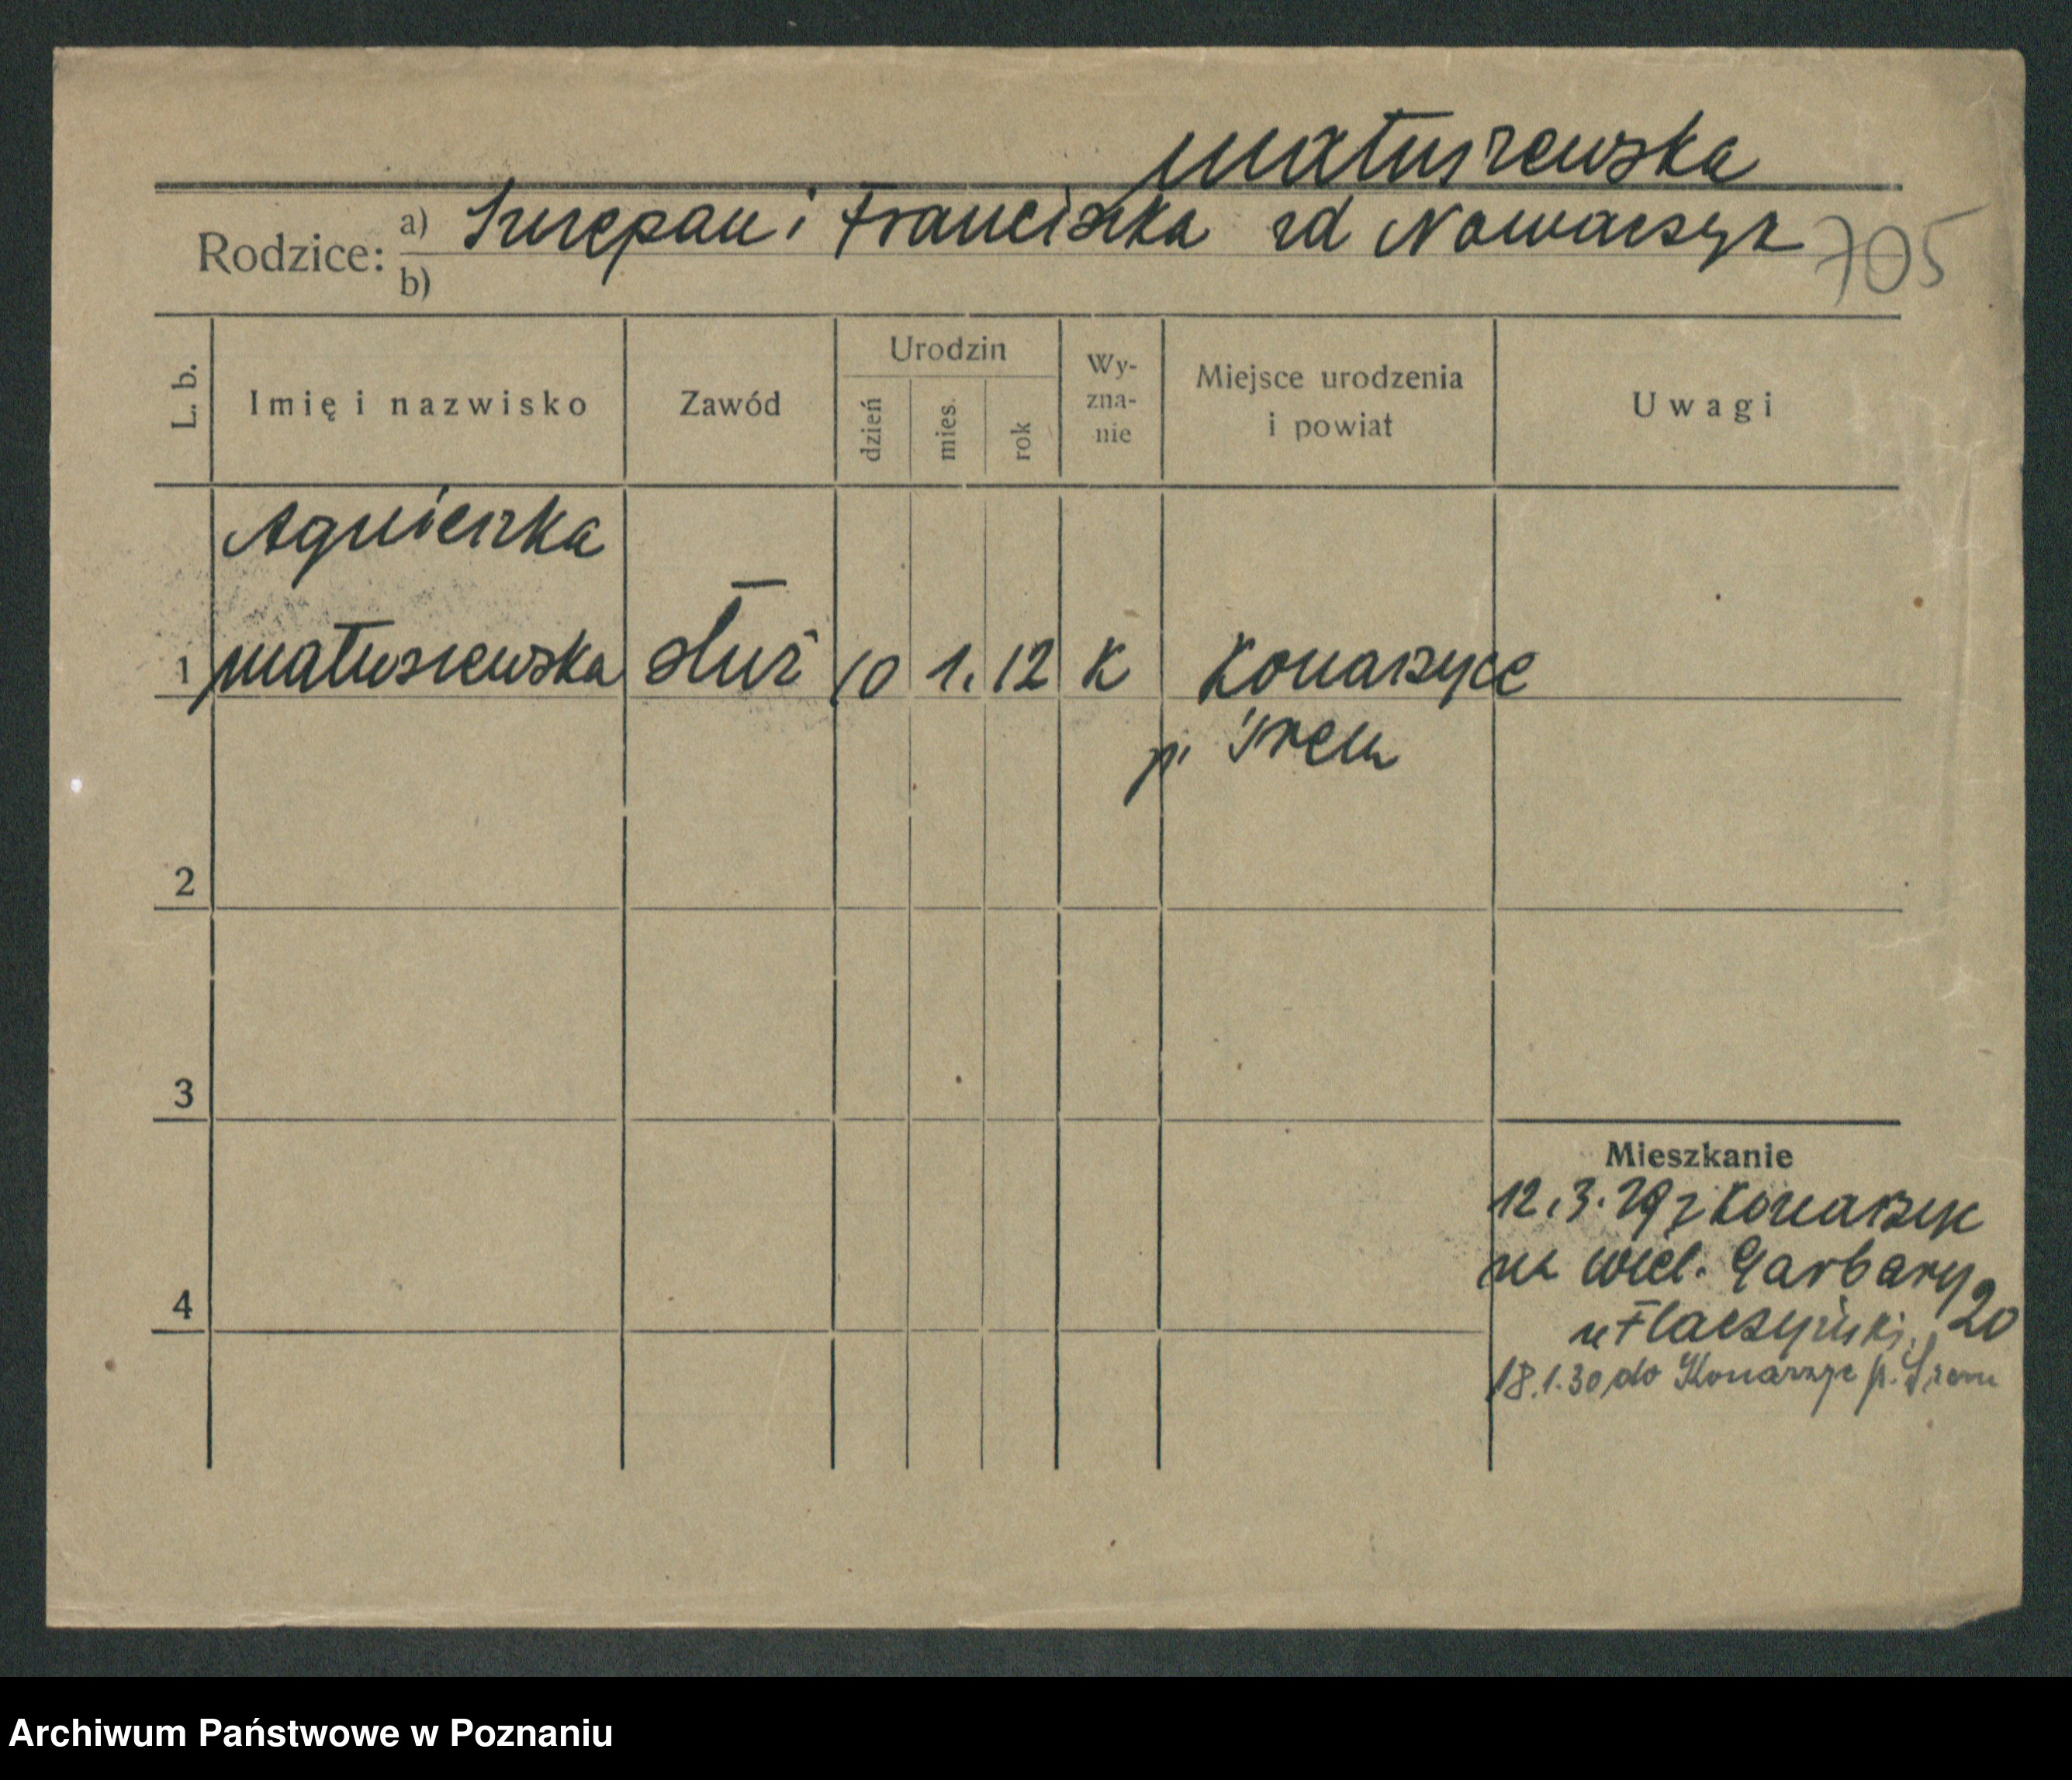 Matuszewska
Rodzice: a) Szczepan i Franciszka zd Nowaczyk
705
b)
L. b.
Imię i nazwisko
Zawód
Urodzin
dzień
mies.
rok
Wy-
zna-
nie
Miejsce urodzenia
i powiat
Uwagi
Agnieszka
1 Matuszewska służ 10 1. 12 K Konarzyce
p. Śrem
2
3
4
Mieszkanie
12.3.29 z Konarzyc
na Wiel. Garbary 20
u Flaczyński,
18.1.30 do Konarzyc p. Śrem
Archiwum Państwowe w Poznaniu